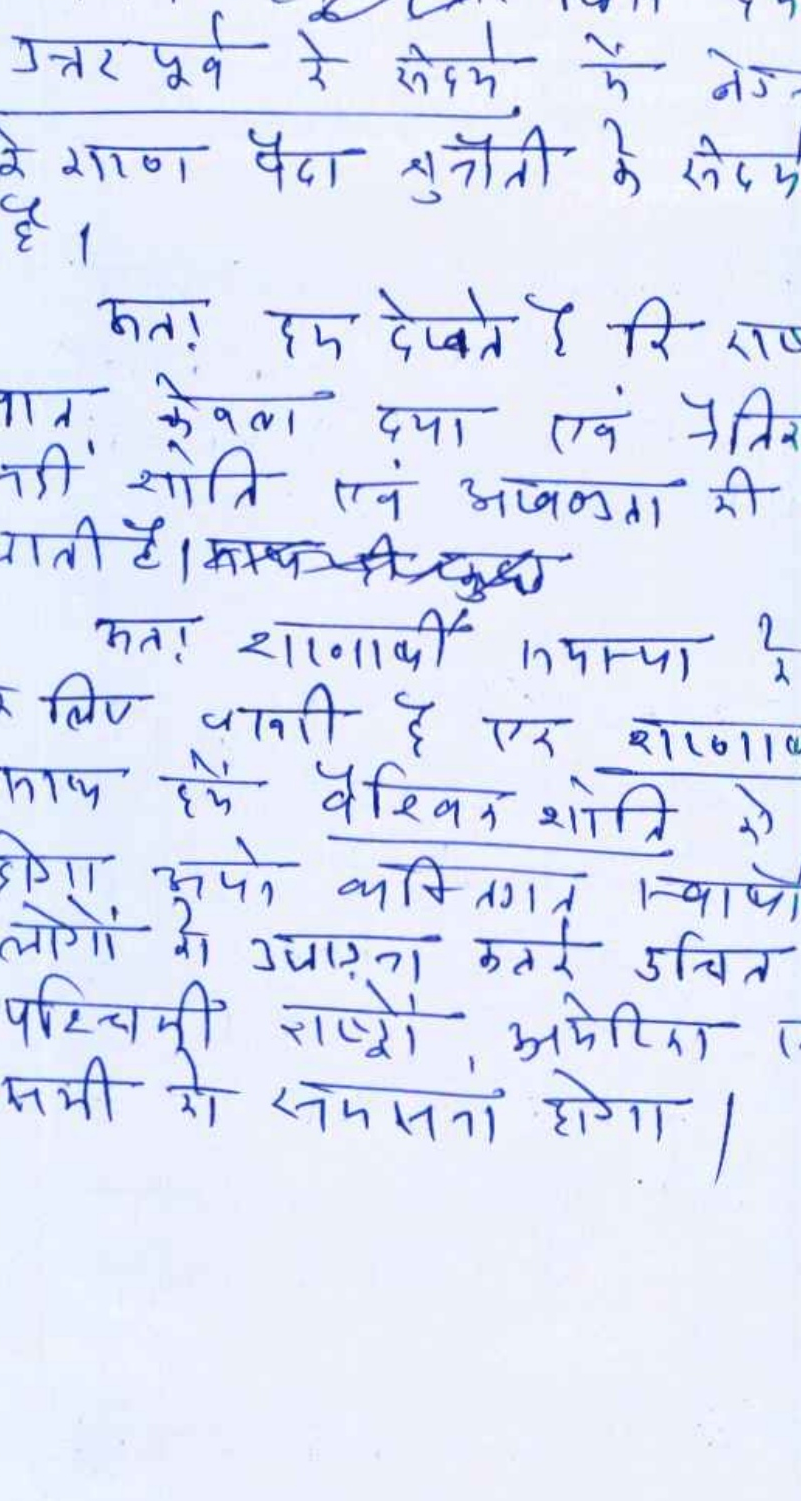 उत्तर पूर्व के संदर्भ में
के कारण पैदा चुनौती के संदर्भ
है।
अतः हम देखते है कि
केवल दया एवं नैतिक
नहीं शांति एवं अखण्डता की
जाती है।
अतः शरणार्थी समस्या के
के लिए काफी है एक
साथ हमें वैश्विक शांति को
होगा अपने व्यक्तिगत स्वार्थों
लोगों को उजाड़ना कतई उचित
पश्चिमी राष्ट्रों, अमेरिका
सभी को समझना होगा।